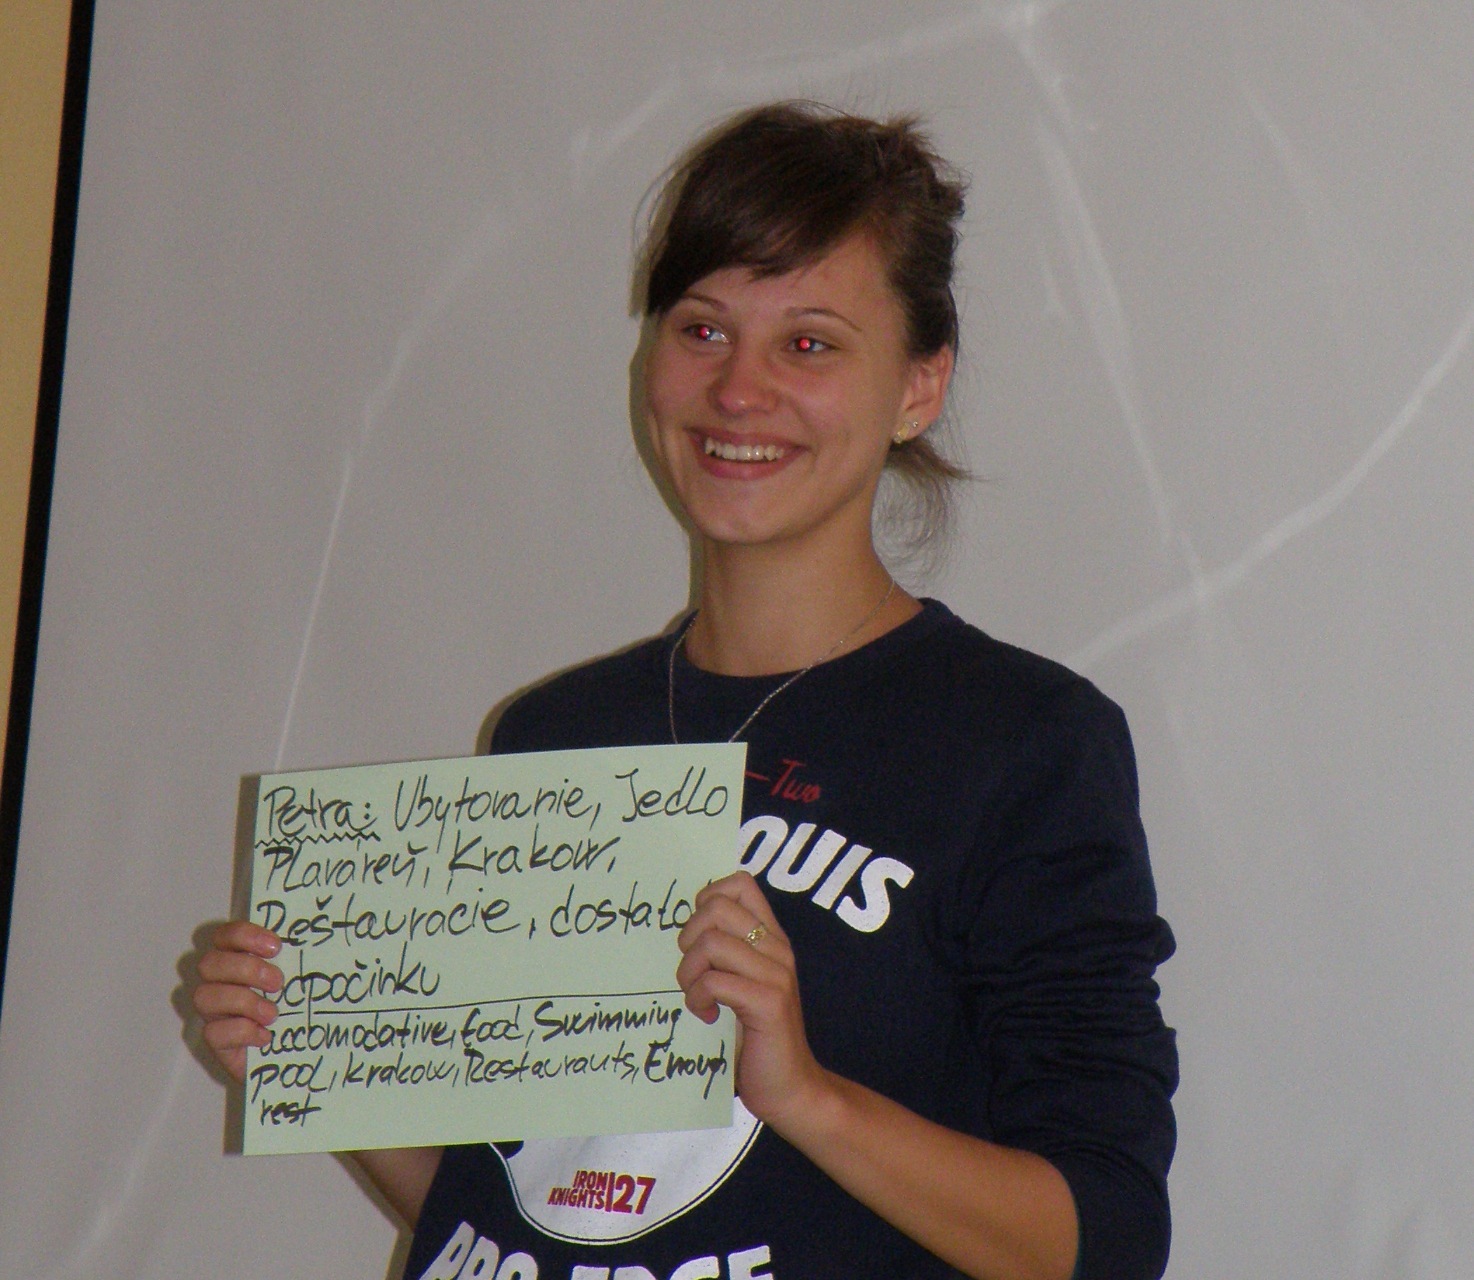 Petra: Ubytovanie, Jedlo
Plaváreň, Krakow,
Reštauracie, dostato
odpočinku
accomodative, food, Swimming
pool, Krakow, Restaurauts, Enough
rest
-Two
OUIS
IRON
KNIGHTS 127
PRO EDGE